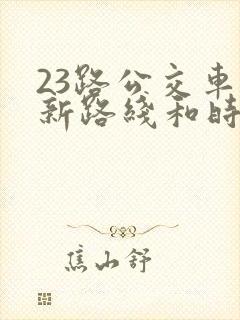 23路公交車
新路綫和時
焦山舒